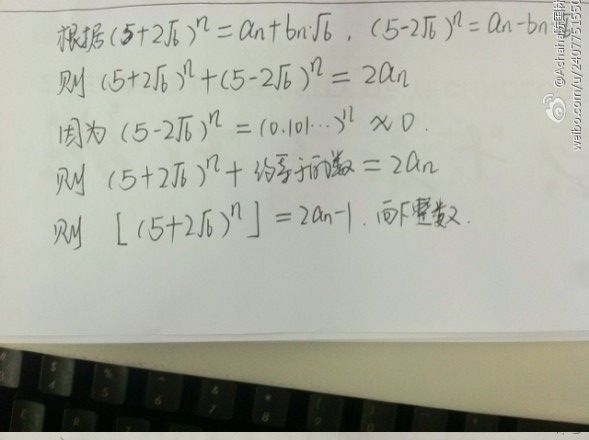 根据(5+2√6)ⁿ=an+bn√6，(5-2√6)ⁿ=an-bn√6
则 (5+2√6)ⁿ+(5-2√6)ⁿ=2an
因为 (5-2√6)ⁿ=(0.101…)ⁿ≈0.
则 (5+2√6)ⁿ+ 约等于0的数=2an
则 [(5+2√6)ⁿ]=2an-1. 向下整数.
weibo.com/u/2407751550